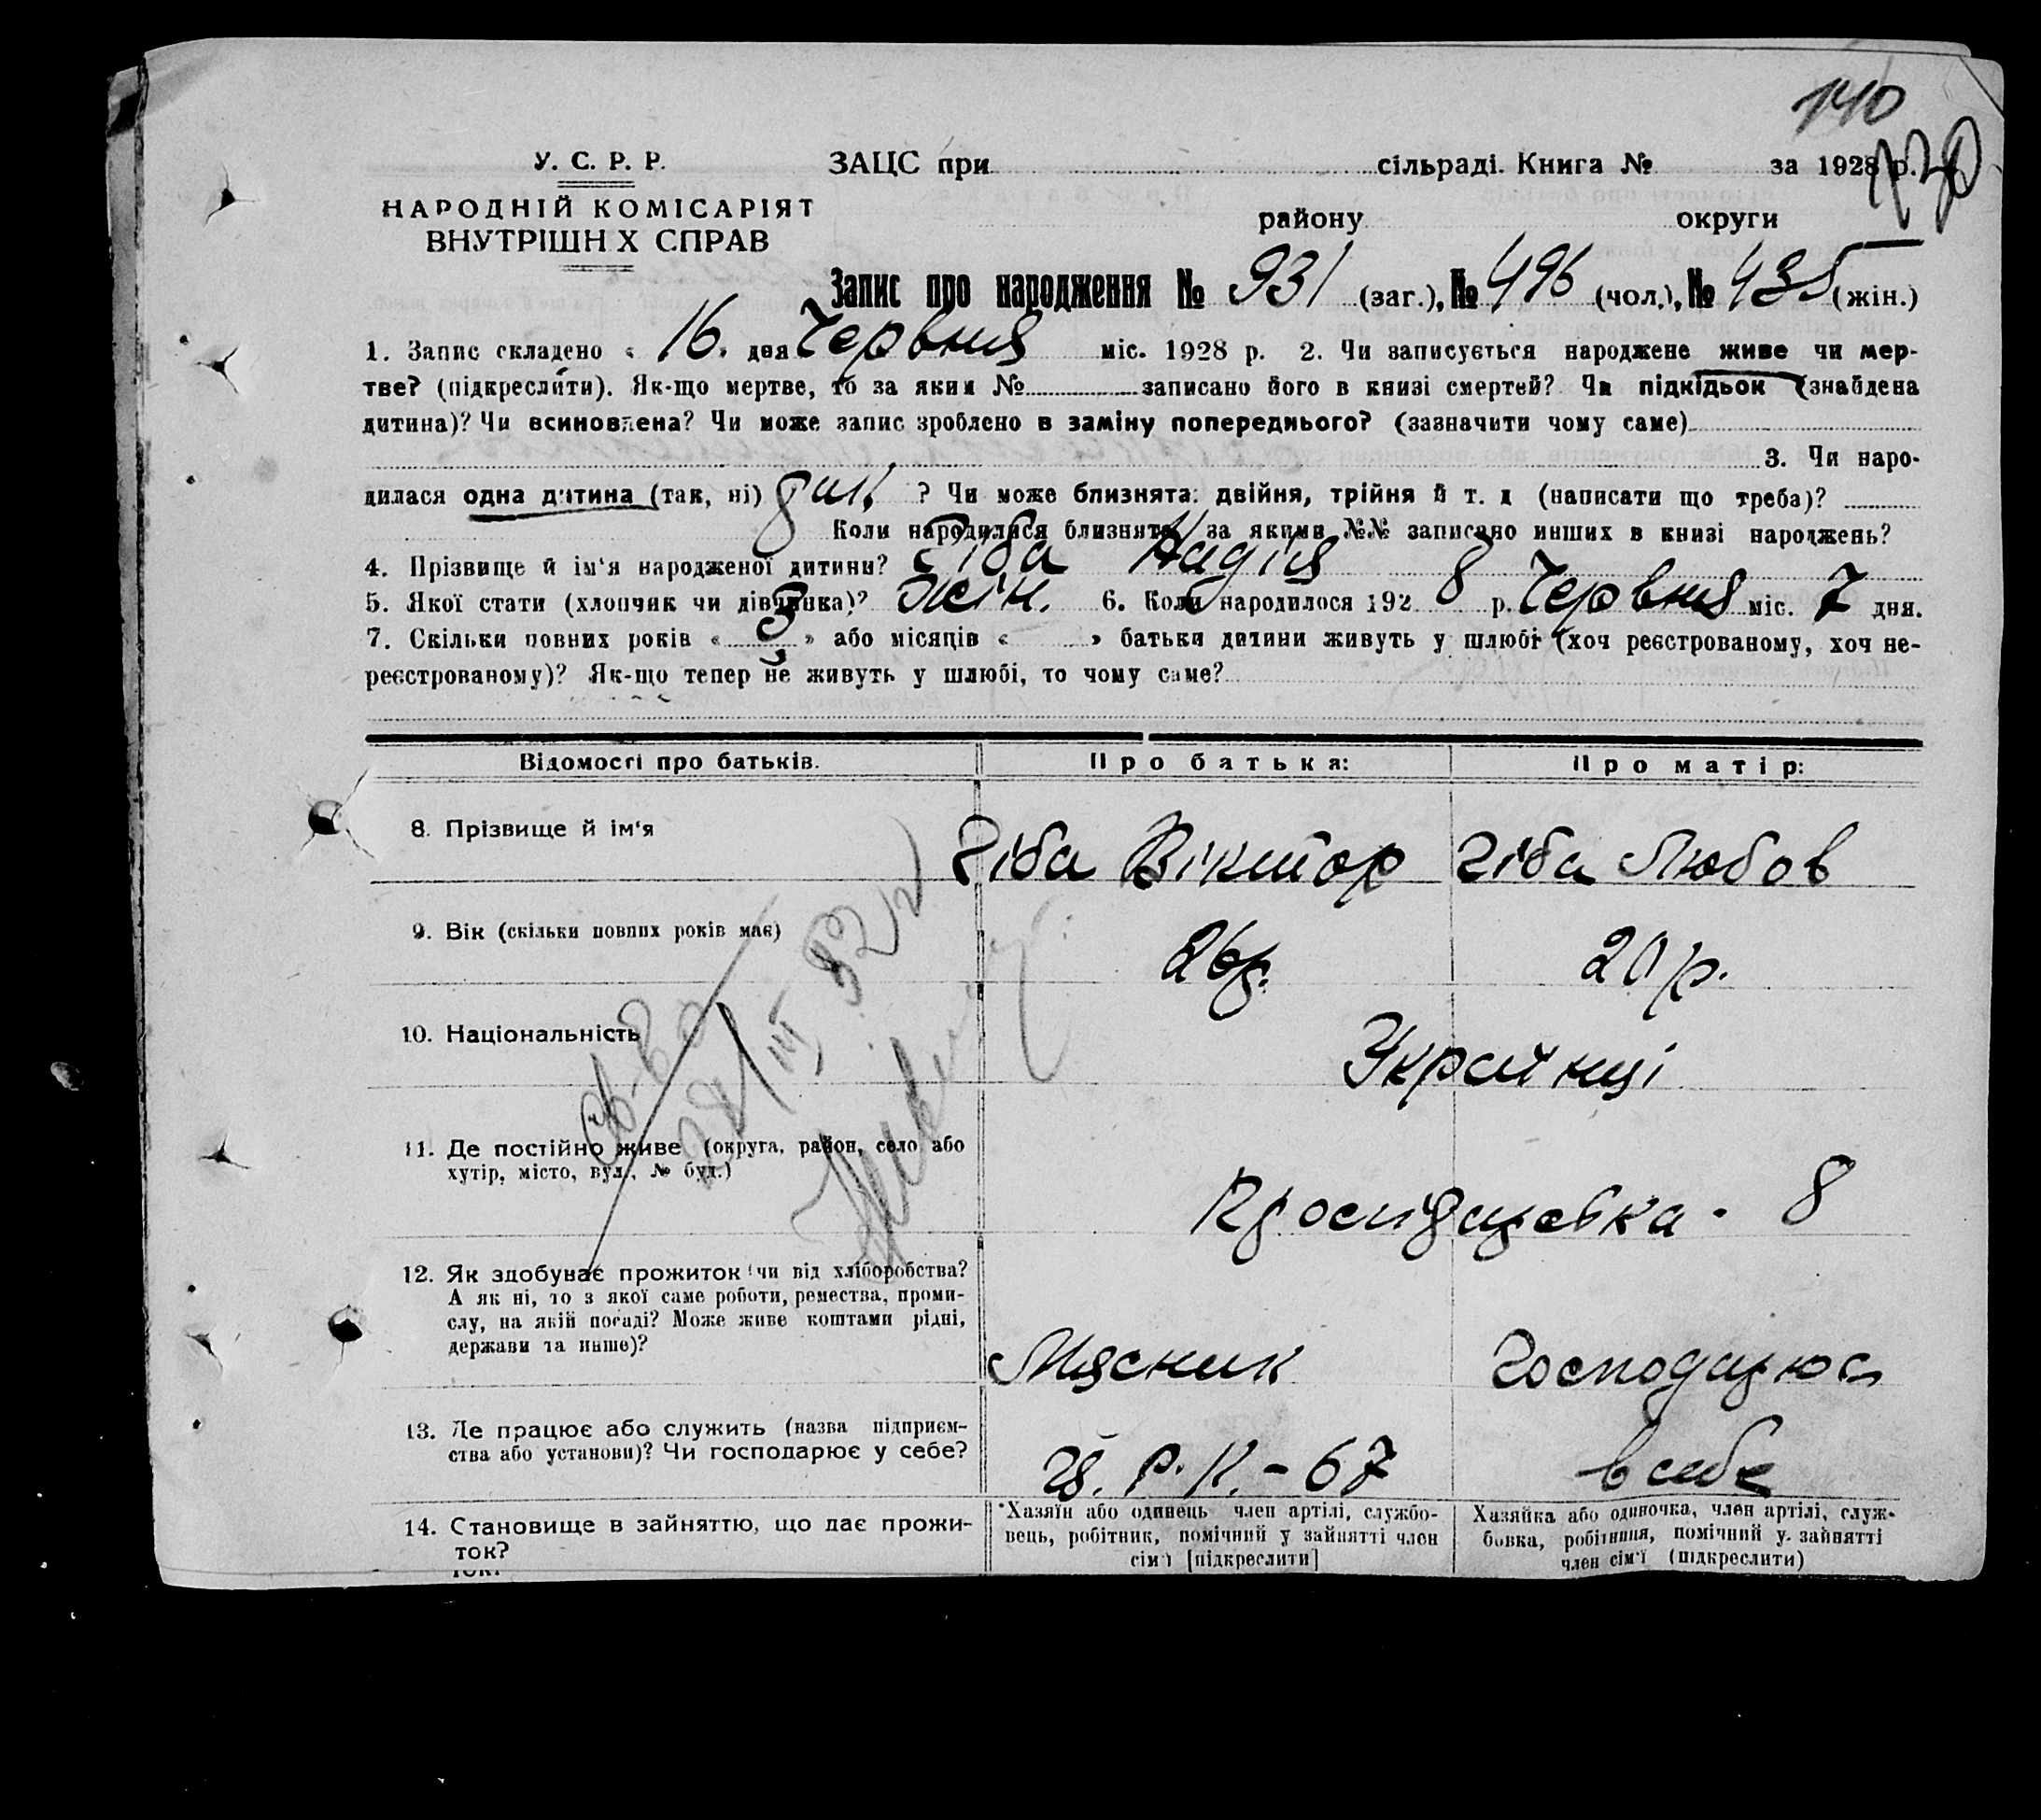 140
У. С. Р. Р.
ЗАЦС при сільраді. Книга № за 1928 р.
НАРОДНІЙ КОМІСАРІЯТ
ВНУТРІШН Х СПРАВ
району округи
Запис про народження № 931 (заг.), № 496 (чол.), № 435 (жін.)
1. Запис складено « 16 » дня Червня міс. 1928 р. 2. Чи записується народжене живе чи мер-
тве? (підкреслити). Як-що мертве, то за яким № записано його в книзі смертей? Чи підкідьок (знайдена
дитина)? Чи всиновлена? Чи може запис зроблено в заміну попереднього? (зазначити чому саме)
3. Чи наро-
дилася одна дитина (так, ні) ? Чи може близнята: двійня, трійня й т. д (написати що треба)?
Коли народилися близнята, за якими №№ записано инших в книзі народжень?
4. Прізвище й ім'я народженої дитини? Гіба Надія
5. Якої стати (хлопчик чи дівчинка)? жін. 6. Коли народилося 192 8 р. Червня міс. 7 дня.
7. Скільки повних років « 3 » або місяців « » батьки дитини живуть у шлюбі (хоч реєстрованому, хоч не-
реєстрованому)? Як-що тепер не живуть у шлюбі, то чому саме?
Відомості про батьків. Про батька: Про матір:
8. Прізвище й ім'я Гіба Віктор Гіба Любов
9. Вік (скільки повних років має) 26 р. 20 р.
10. Національність Українці
11. Де постійно живе (округа, район, село або
хутір, місто, вул., № буд.)
8
12. Як здобуває прожиток (чи від хліборобства?
А як ні, то з якої саме роботи, ремества, проми-
слу, на якій посаді? Може живе коштами рідні,
держави та инше)?
Мясник
13. Де працює або служить (назва підприєм-
ства або установи)? Чи господарює у себе?
Р.К. - 67 в себе
14. Становище в зайняттю, що дає прожи-
ток?
Хазяїн або одинець член артілі, службо-
вець, робітник, помічний у зайнятті член
сім'ї [підкреслити]
Хазяйка або одиночка, член артілі, служ-
бовка, робітниця, помічний у зайнятті
член сім'ї (підкреслити)